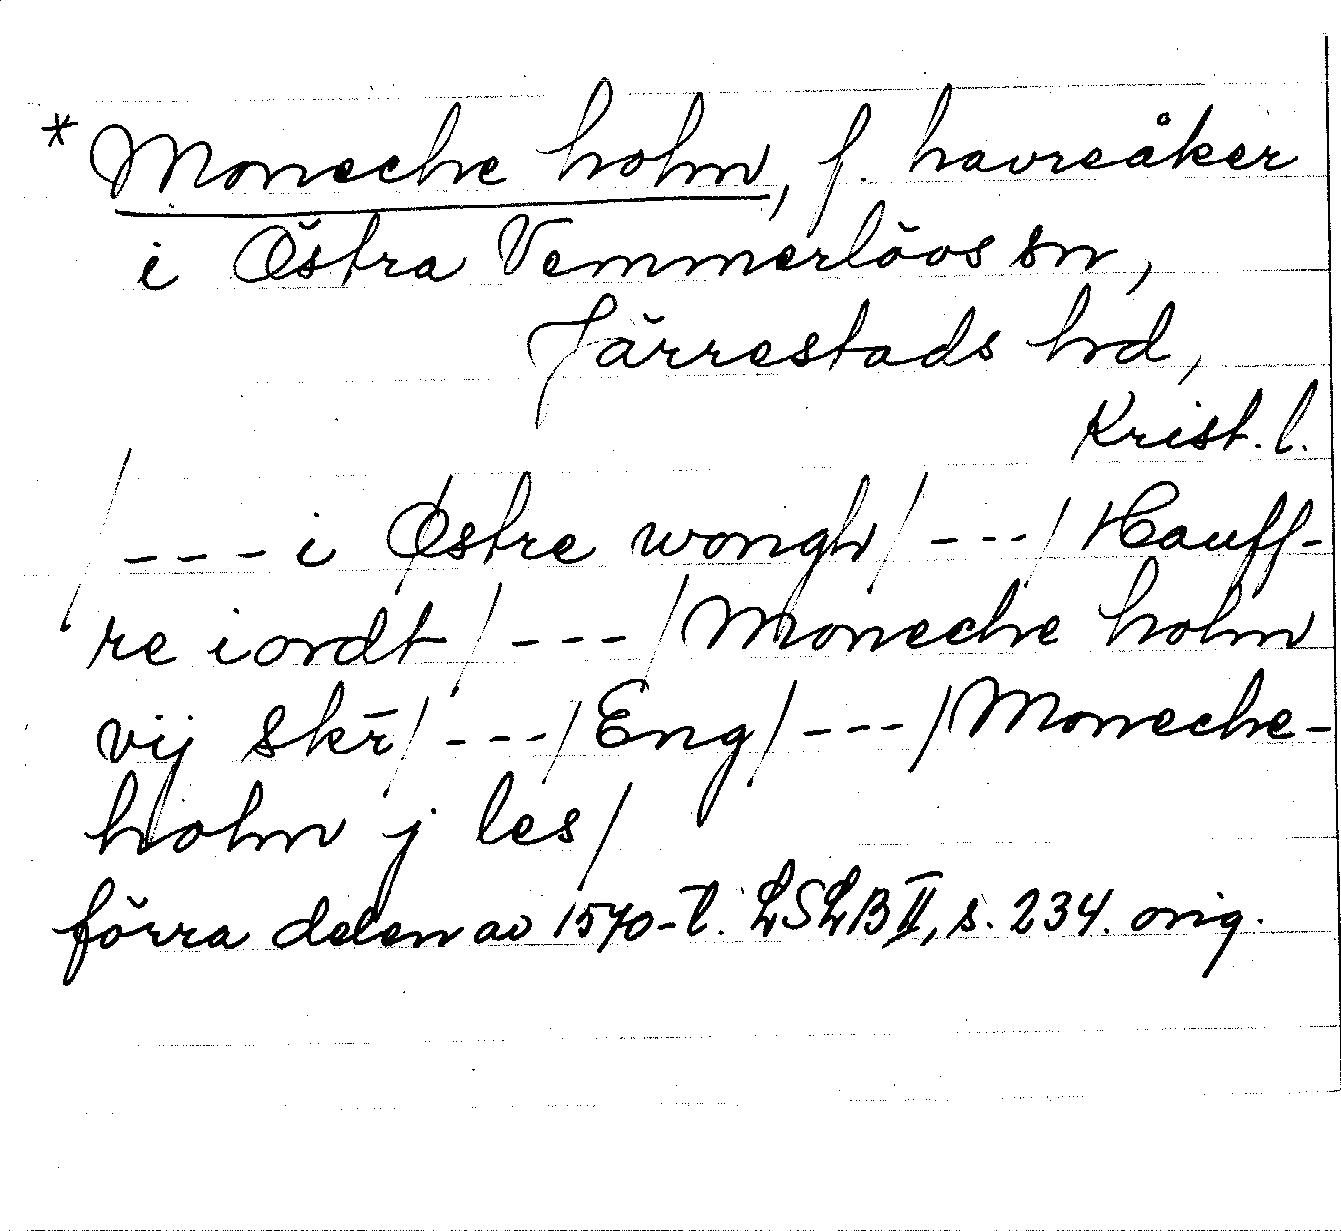 * Moneche holm, f. havreåker
i Östra Vemmerlövs sn,
Järrestads hd,
Krist. l.
/---i Østre wongh/---/Hauff-
re iordt/---/Moneche holm
vij skr̄/---/Eng/---/Moneche-
holm j les/
förra delen av 1570-t. LSLB II, s. 234. orig.